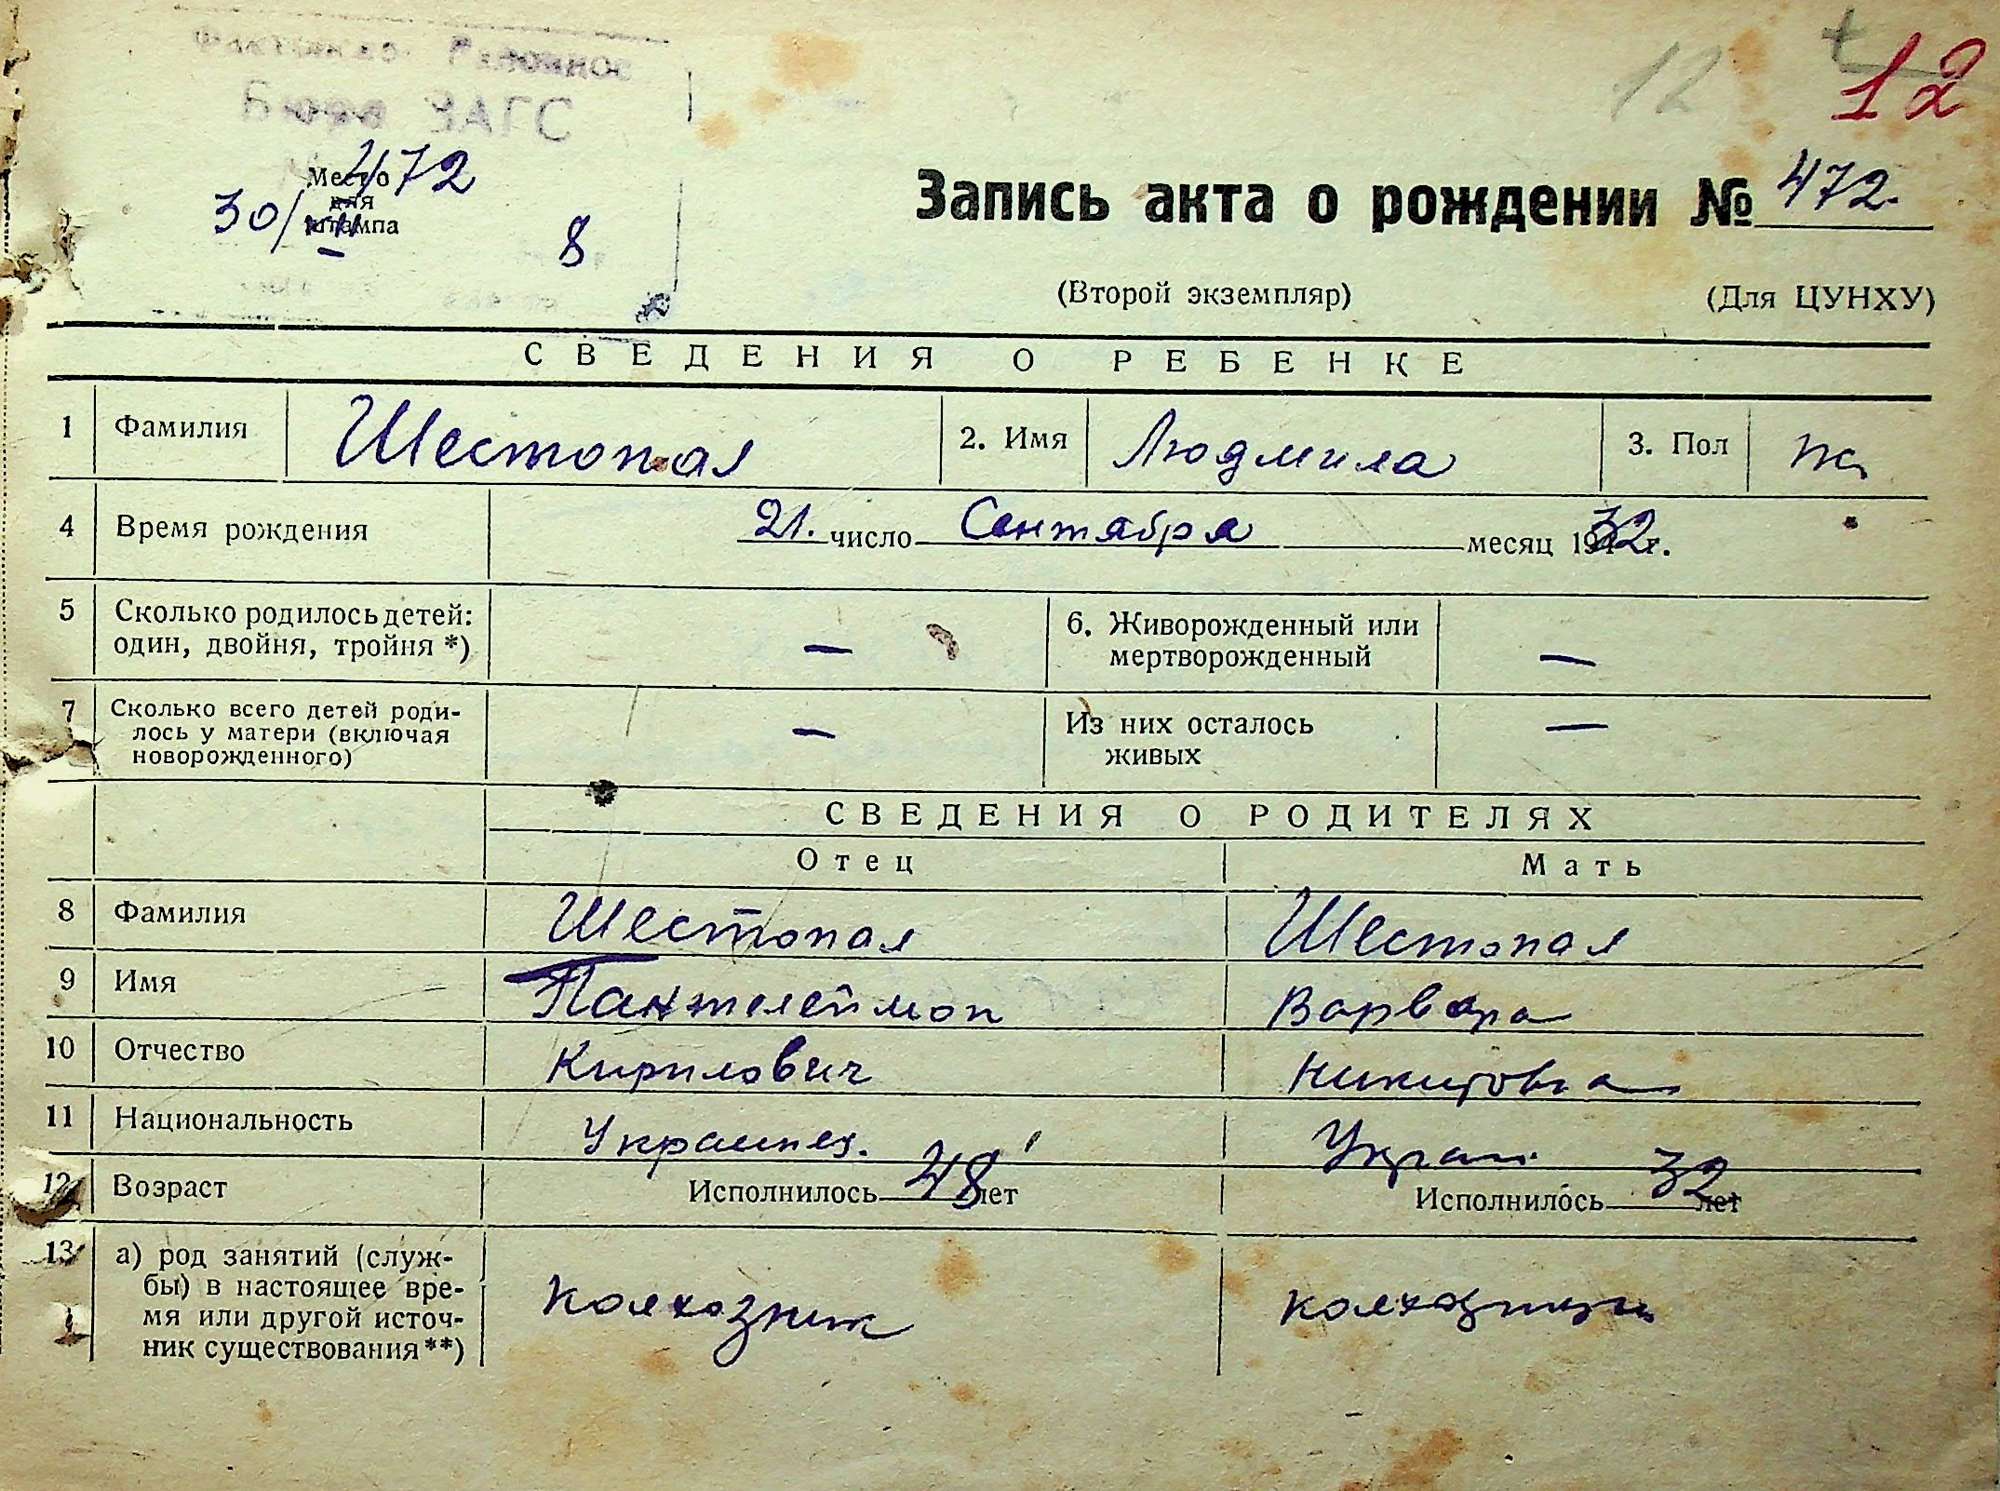 12 12
Бюро ЗАГС
Место
для
штампа
472
30/VII 8
Запись акта о рождении № 472.
(Второй экземпляр) (Для ЦУНХУ)
СВЕДЕНИЯ О РЕБЕНКЕ
1 Фамилия Шестопал 2. Имя Людмила 3. Пол ж
4 Время рождения 21. число Сентября месяц 1932 г.
5 Сколько родилось детей: один, двойня, тройня *) — 6. Живорожденный или мертворожденный —
7 Сколько всего детей роди-
лось у матери (включая
новорожденного) — Из них осталось живых —
СВЕДЕНИЯ О РОДИТЕЛЯХ
Отец Мать
8 Фамилия Шестопал Шестопал
9 Имя Пантелеймон Варвара
10 Отчество Кирилович Никитовна
11 Национальность Украинец. Украин
12 Возраст Исполнилось 48 лет Исполнилось 32 лет
13 а) род занятий (служ-
бы) в настоящее вре-
мя или другой источ-
ник существования**) колхозник колхозница